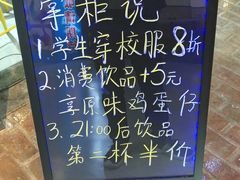 掌柜说
1.学生穿校服8折
2.消费饮品+5元
享原味鸡蛋仔
3.21:00后饮品
第二杯半价